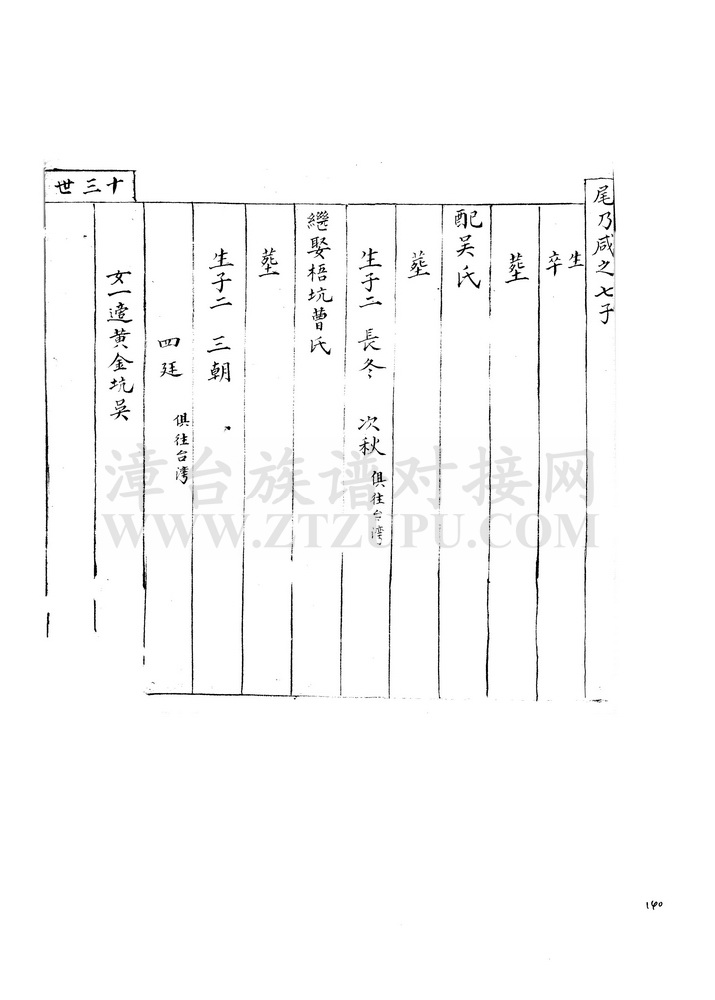 十三世
尾乃咸之七子
生
卒
葬
配吴氏
葬
生子二 長冬 次秋 俱往台湾
繼娶梧坑曹氏
葬
生子二 三朝
四廷 俱往台湾
女一適黄金坑吳
漳台族谱对接网
WWW.ZTZUPU.COM
140